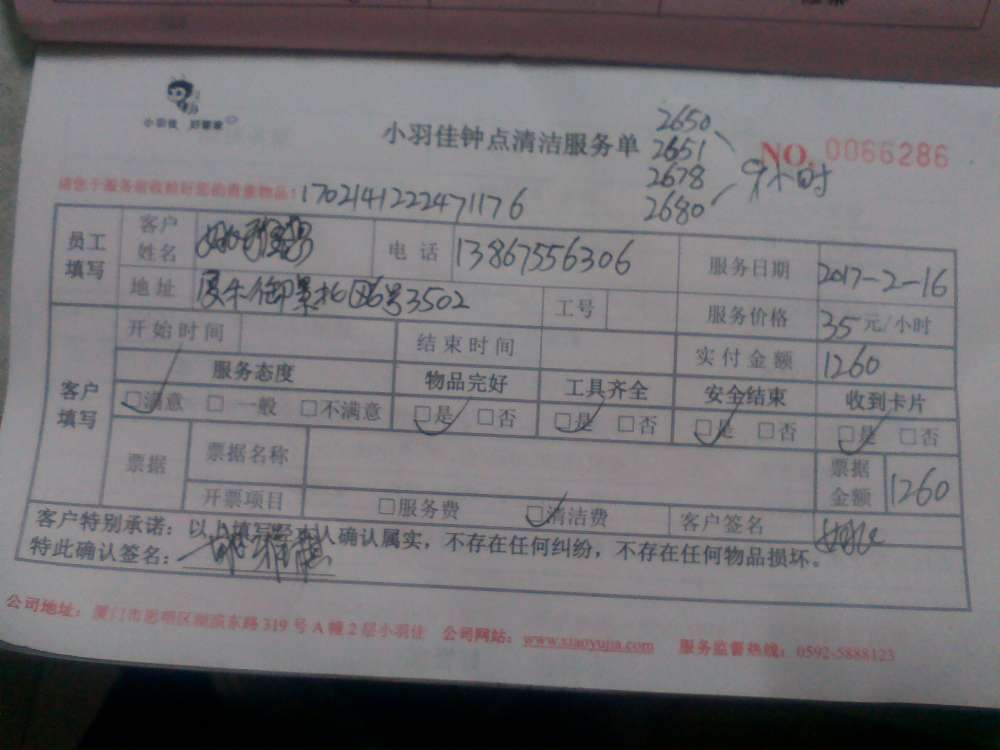 小羽佳 好管家
小羽佳钟点清洁服务单
2650
2651
2678
2680
9小时
NO. 0066286
请您于服务前收拾好您的贵重物品:
1702141222471176
员工填写 客户姓名 电话 13867556306 服务日期 2017-2-16
地址 御景北区6号3502 工号 服务价格 35元/小时
客户填写 开始时间 结束时间 实付金额 1260
服务态度 物品完好 工具齐全 安全结束 收到卡片
□满意 □一般 □不满意 □是 □否 □是 □否 □是 □否 □是 □否
票据 票据名称 票据金额 1260
开票项目 □服务费 □清洁费 客户签名
客户特别承诺:以上填写经本人确认属实,不存在任何纠纷,不存在任何物品损坏。
特此确认签名:
公司地址:厦门市思明区湖滨东路319号A幢2层小羽佳 公司网站:www.xiaoyujia.com 服务监督热线:0592-5888123